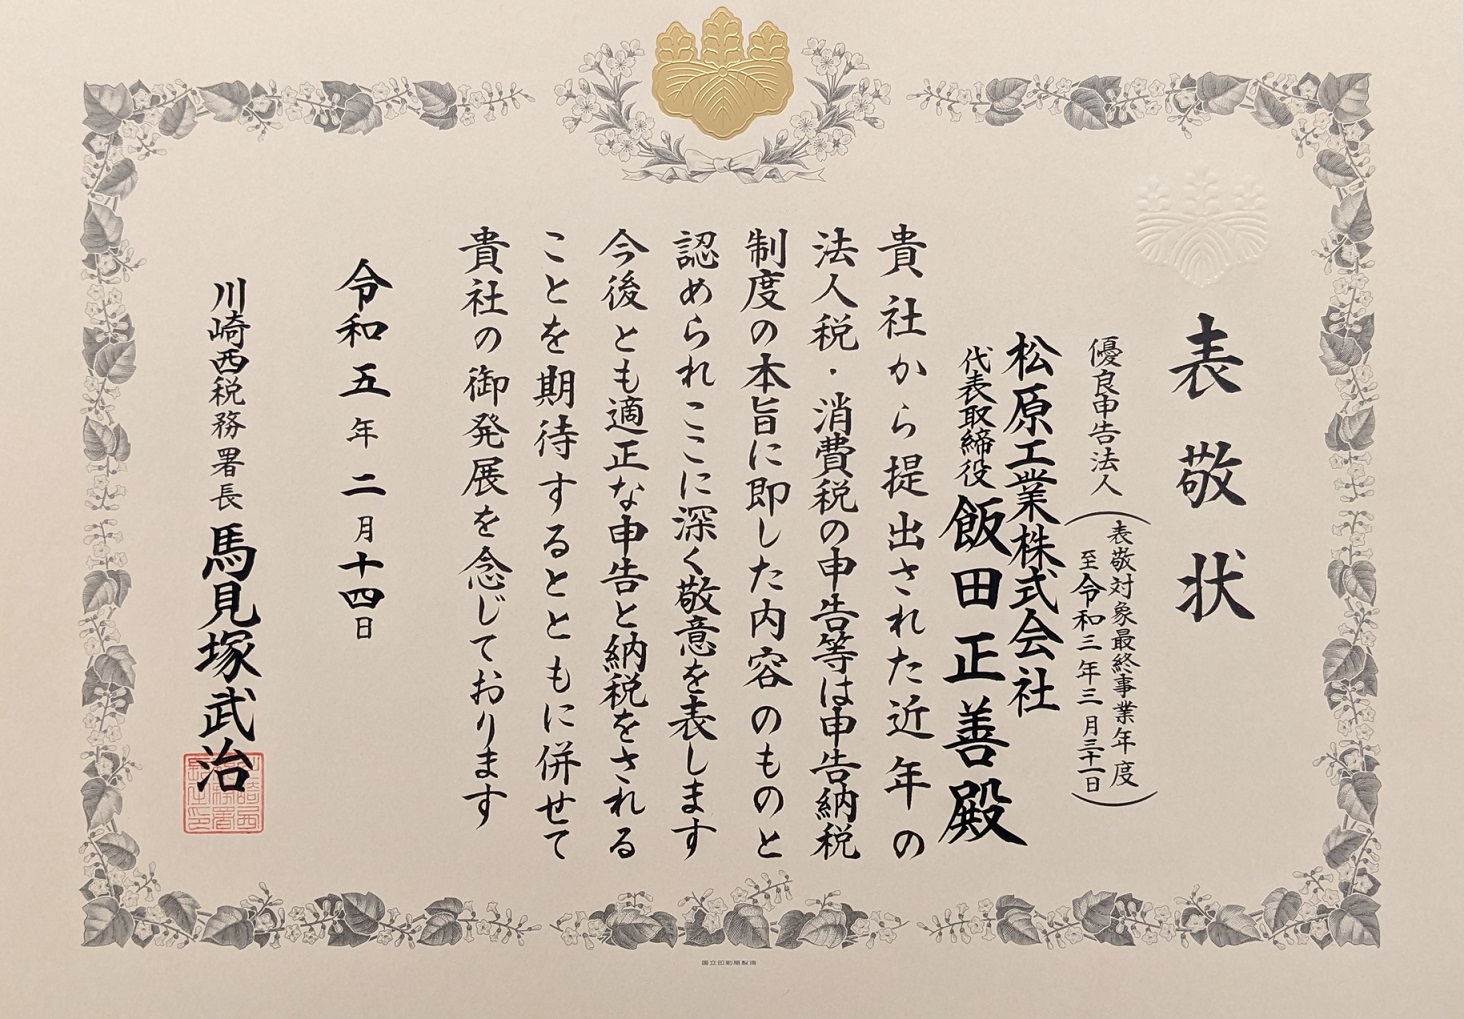 表敬状
優良申告法人
（表敬対象最終事業年度
至令和三年三月三十一日）
松原工業株式会社
代表取締役 飯田正善殿
貴社から提出された近年の
法人税・消費税の申告等は申告納税
制度の本旨に即した内容のものと
認められここに深く敬意を表します
今後とも適正な申告と納税をされる
ことを期待するとともに併せて
貴社の御発展を念じております
令和五年二月十四日
川崎西税務署長 馬見塚武治
国立印刷局製造